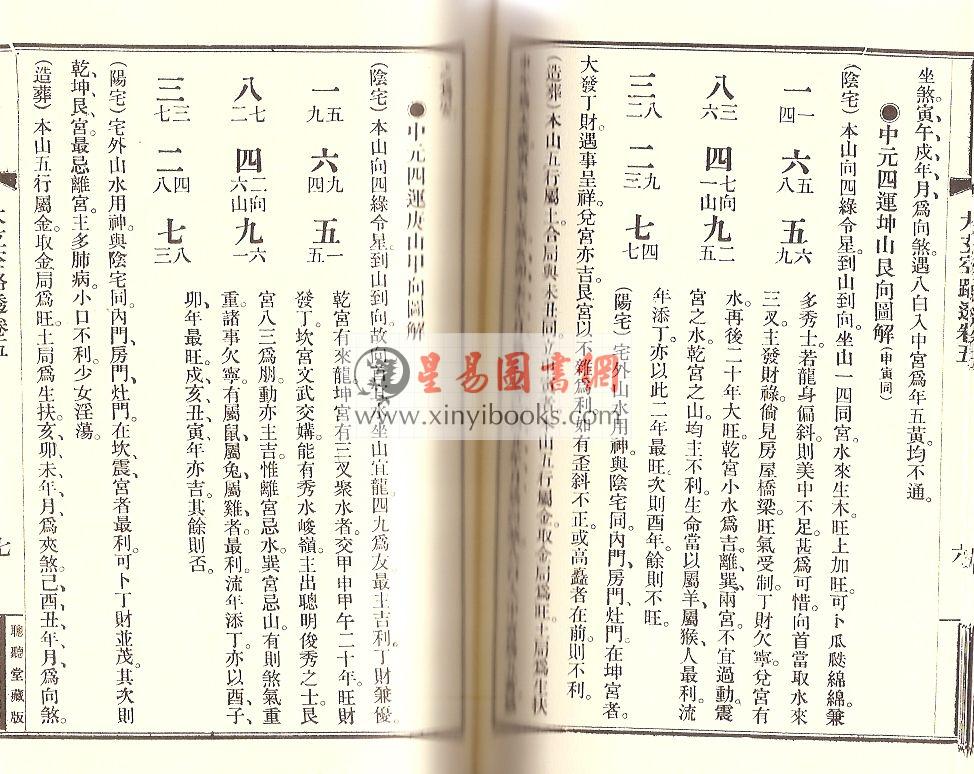 坐煞寅、午、戌年、月為向煞。遇八白入中宮為年五黃均不通。
●中元四運坤山艮向圖解(申寅同)
(陰宅)本山向四綠令星到山到向。坐山一四同宮。水來生木。旺上加旺。可卜瓜瓞綿綿。兼
多秀士。若龍身偏斜。則美中不足。甚為可惜。向首當取水來
三叉。主發財祿。倘見房屋橋梁。旺氣受制。丁財欠寧。兌宮有
水。再後二十年大旺。乾宮小水為吉。離、巽兩宮不宜過動。震
宮之水。乾宮之山。均主不利。生命當以屬羊、屬猴人最利。流
年添丁。亦以此二年最旺。次則酉年。餘則不旺。
一 一四 六 五八 五 六九
八 三六 四 七向一山 九 二五
三 八二 二 九三 七 四七
(陽宅)宅外山水用神。與陰宅同。內門、房門、灶門。在坤宮者。
大發丁財。遇事呈祥。兌宮亦吉。艮宮以不雜為利。如有歪斜不正。或高矗者在前。則不利。
(造葬)本山五行屬土。合局與未丑同。
山五行屬金。取金局為旺。土局為生扶
●中元四運庚山甲向圖解
(陰宅)本山向四綠令星到山到向。故
坐山宜龍。四九為友。最主吉利。丁財兼優。
乾宮有來龍。坤宮有三叉聚水者。交甲申甲午二十年。旺財
發丁。坎宮文武交媾。能有秀水峻嶺。主出聰明俊秀之士。艮
宮八三為朋。動亦主吉。惟離宮忌水。巽宮忌山。有則煞氣重
重。諸事欠寧。有屬鼠、屬兔、屬雞者最利。流年添丁。亦以酉、子、
卯年最旺。戌、亥、丑、寅年亦吉。其餘則否。
一 五九 六 九四 五 一五
八 七二 四 二向六山 九 六一
三 三七 二 四八 七 八三
(陽宅)宅外山水用神。與陰宅同。內門、房門、灶門。在坎、震宮者最利。可卜丁財並茂。其次則
乾、坤、艮宮。最忌離宮。主多肺病。小口不利。少女淫蕩。
(造葬)本山五行屬金。取金局為旺。土局為生扶。亥、卯、未年、月為夾煞。己、酉、丑年、月為向煞。
聰聽堂藏版
七
六
星易圖書網
www.xinyibooks.com